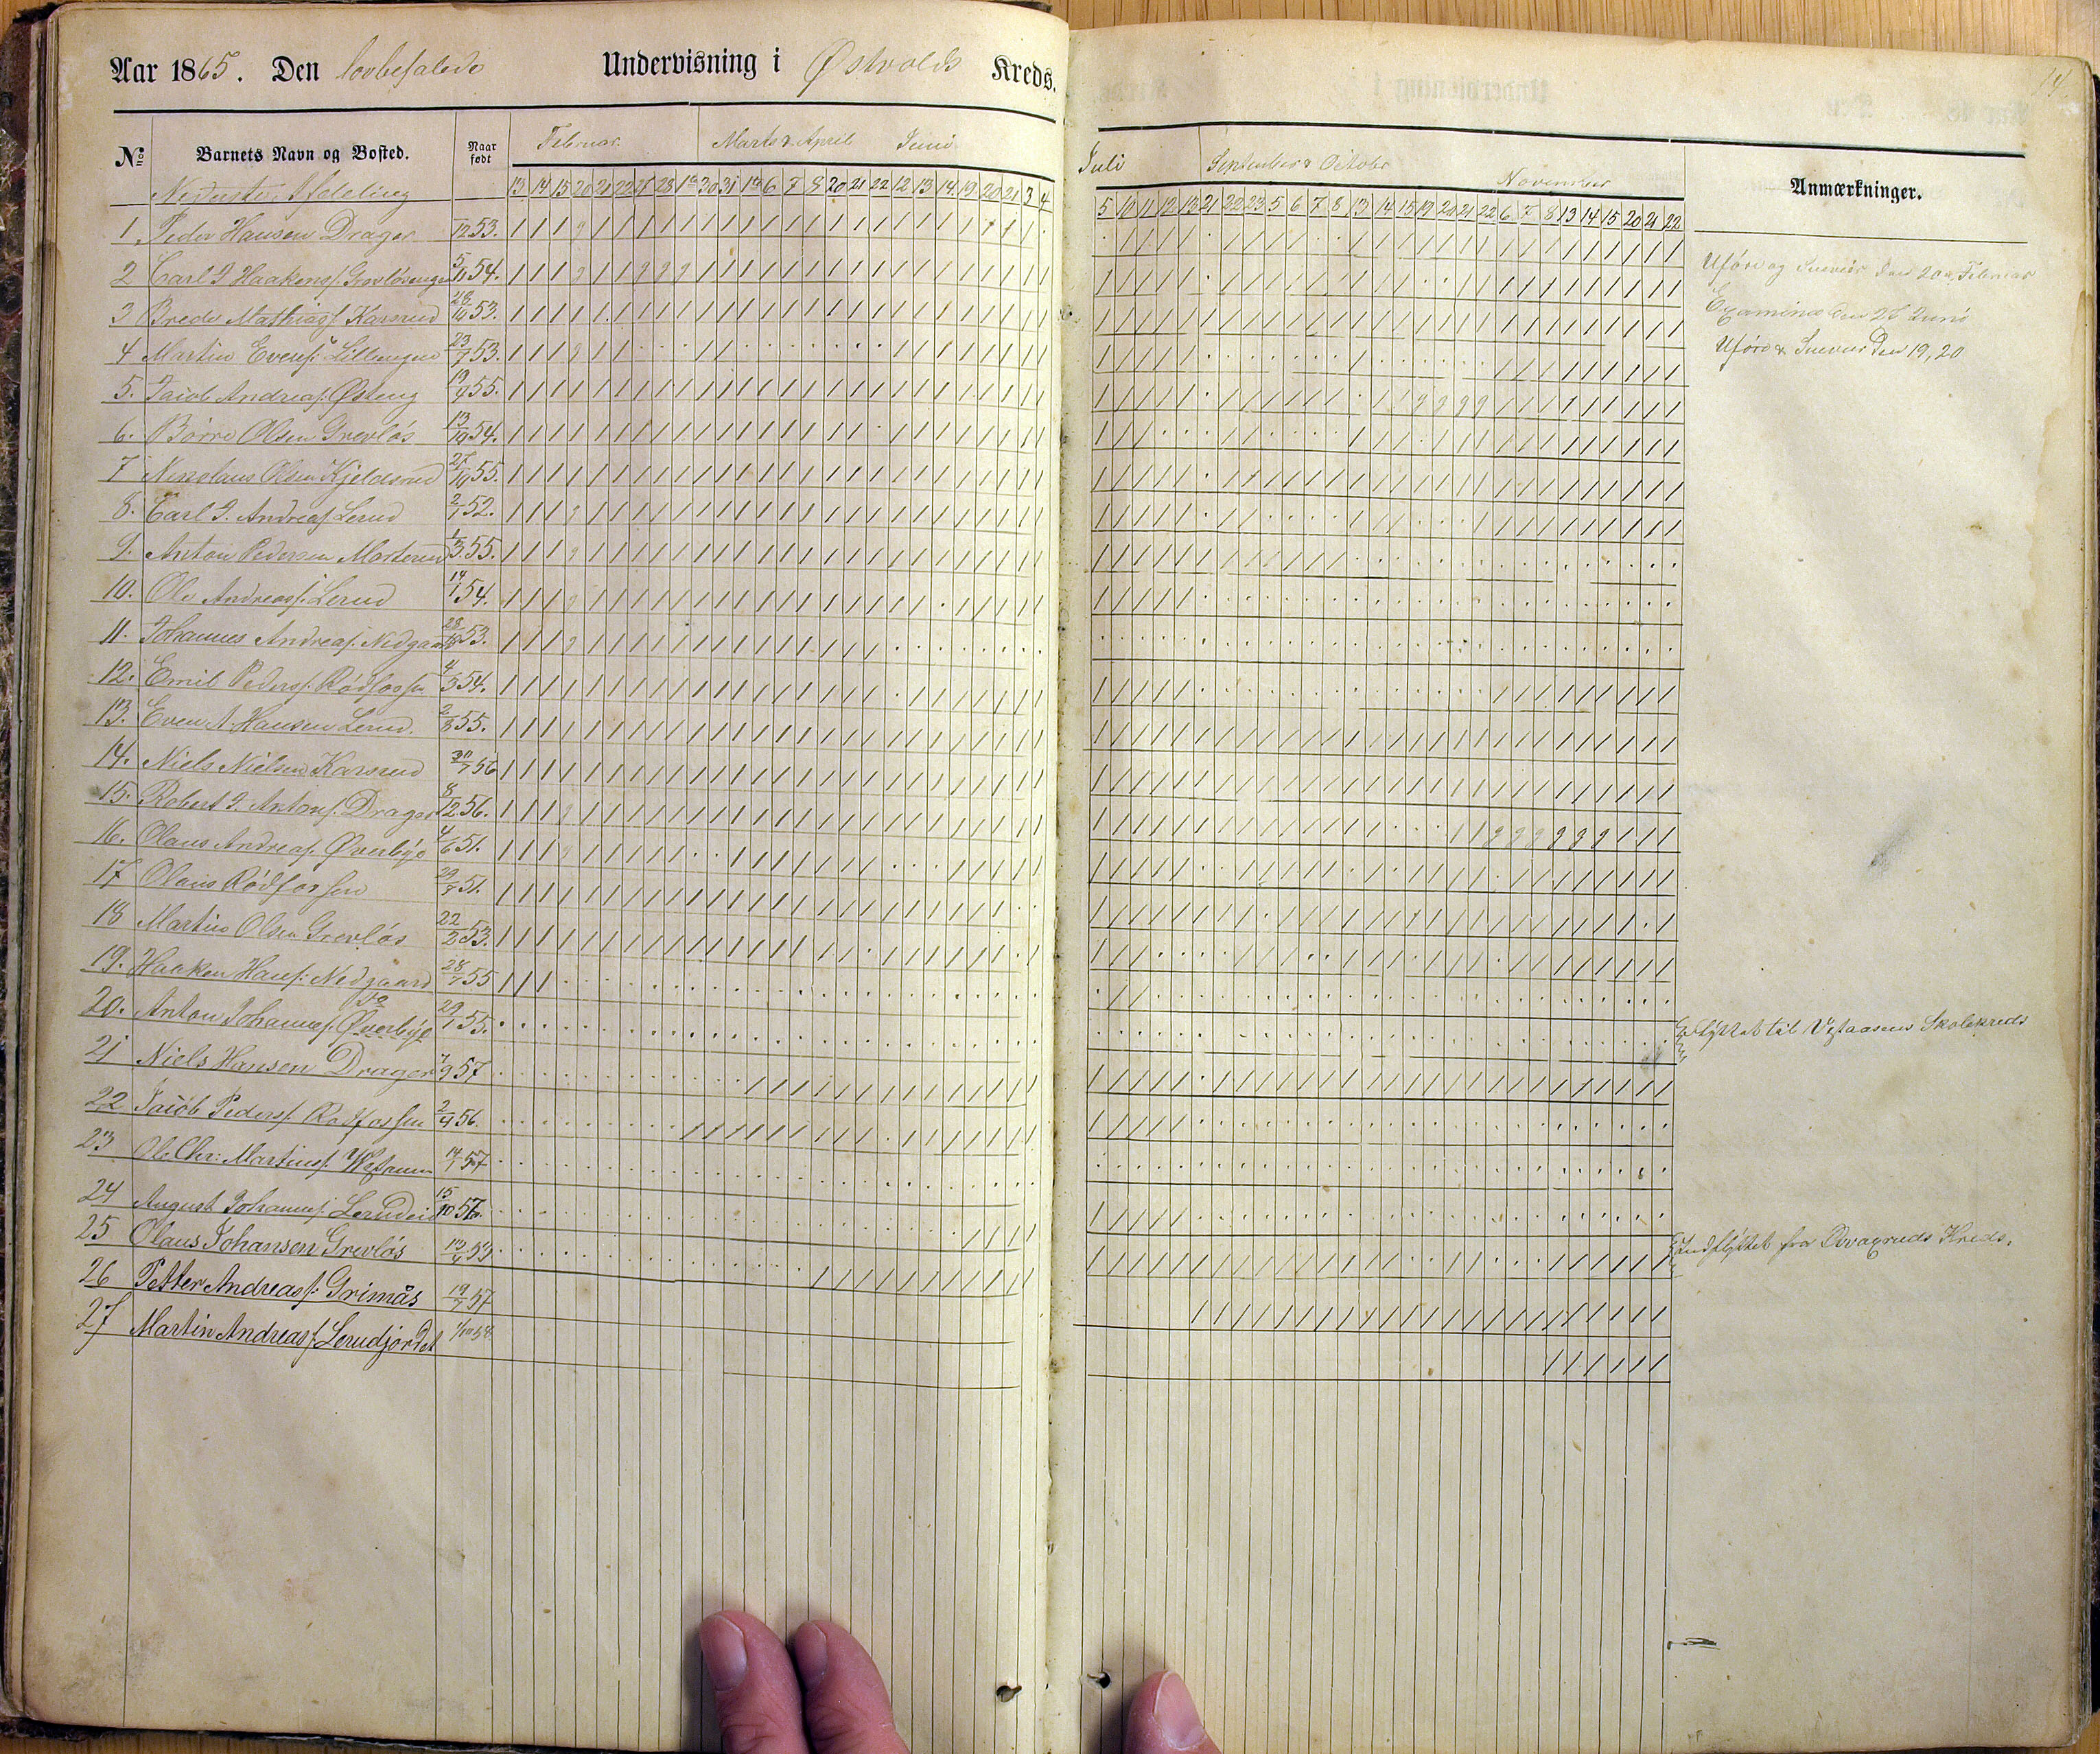 Aar 1865. Den lovbefalede Undervisning i Østvolds Kreds.
No Barnets Navn og Bosted. Naar født Februar Marts & April Juni
Nederste Afdeling 13 14 15 20 21 22 27 28 1a 30 31 1a 6 7 8 20 21 22 12 13 14 19 20 21 3 4
1 Peder Hansen Drager 12 53.
2 Carl J Haakens. Grevløsenge 5/11 54.
3 Brede Mathias. Karsrud 28/10 53.
4 Martin Evens: Lillengen 23/7 53.
5. Jacob Andreas. Østeng 19/9 55.
6. Børre Olsen Grevløs 13/10 54.
7 Nikolaus Olsen Kjeldsrud 27/10 55.
8. Carl J. Andreas. Lerud 2/7 52.
9. Anton Pedersen Morterud 55.
10. Ole Andreass. Lerud 14/1 54.
11. Johannes Andreas. Nedgaard 28 53.
12. Emil Peders. Rødfossen 4/3 54.
13. Even A. Hansen Lerud. 2/8 55.
14. Niels Nielsen Karsrud 30/7 56
15. Robert J. Antons. Drager 8/12 56.
16. Olaus Andreas. Øverbye 4/6 51.
17 Olaus Rødfossen 29/7 51.
18 Martin Olsen Grevløs 22/2 53.
19. Haaken Hans: Nedgaard 28/7 55
20. Anton Johannes. Øverbye 29/1 55.
21 Niels Hansen Drager 7/9 57
22 Jacob Peders. Rødfossen 2/4 56.
23 Ole Chr: Martins. 14/7 57
24 August Johannes. Lerudeie 15/10 56.
25 Olaus Johansen Grevløs 13/4 53
26 Petter Andreass: Grimås 19/7 57
27 Martin Andreass. Lerudjordet 1/10 58
14
Juli September & October November Anmærkninger.
5 10 11 12 13 21 22 23 5 6 7 8 13 14 15 19 20 21 22 6 7 8 13 14 15 20 21 22
Uføre og Snevær den 20de Februar
Examine den 26 Juni
Uføre & Snevær Den 19, 20
flyttet til Skolekreds
Indflyttet fra Kreds.